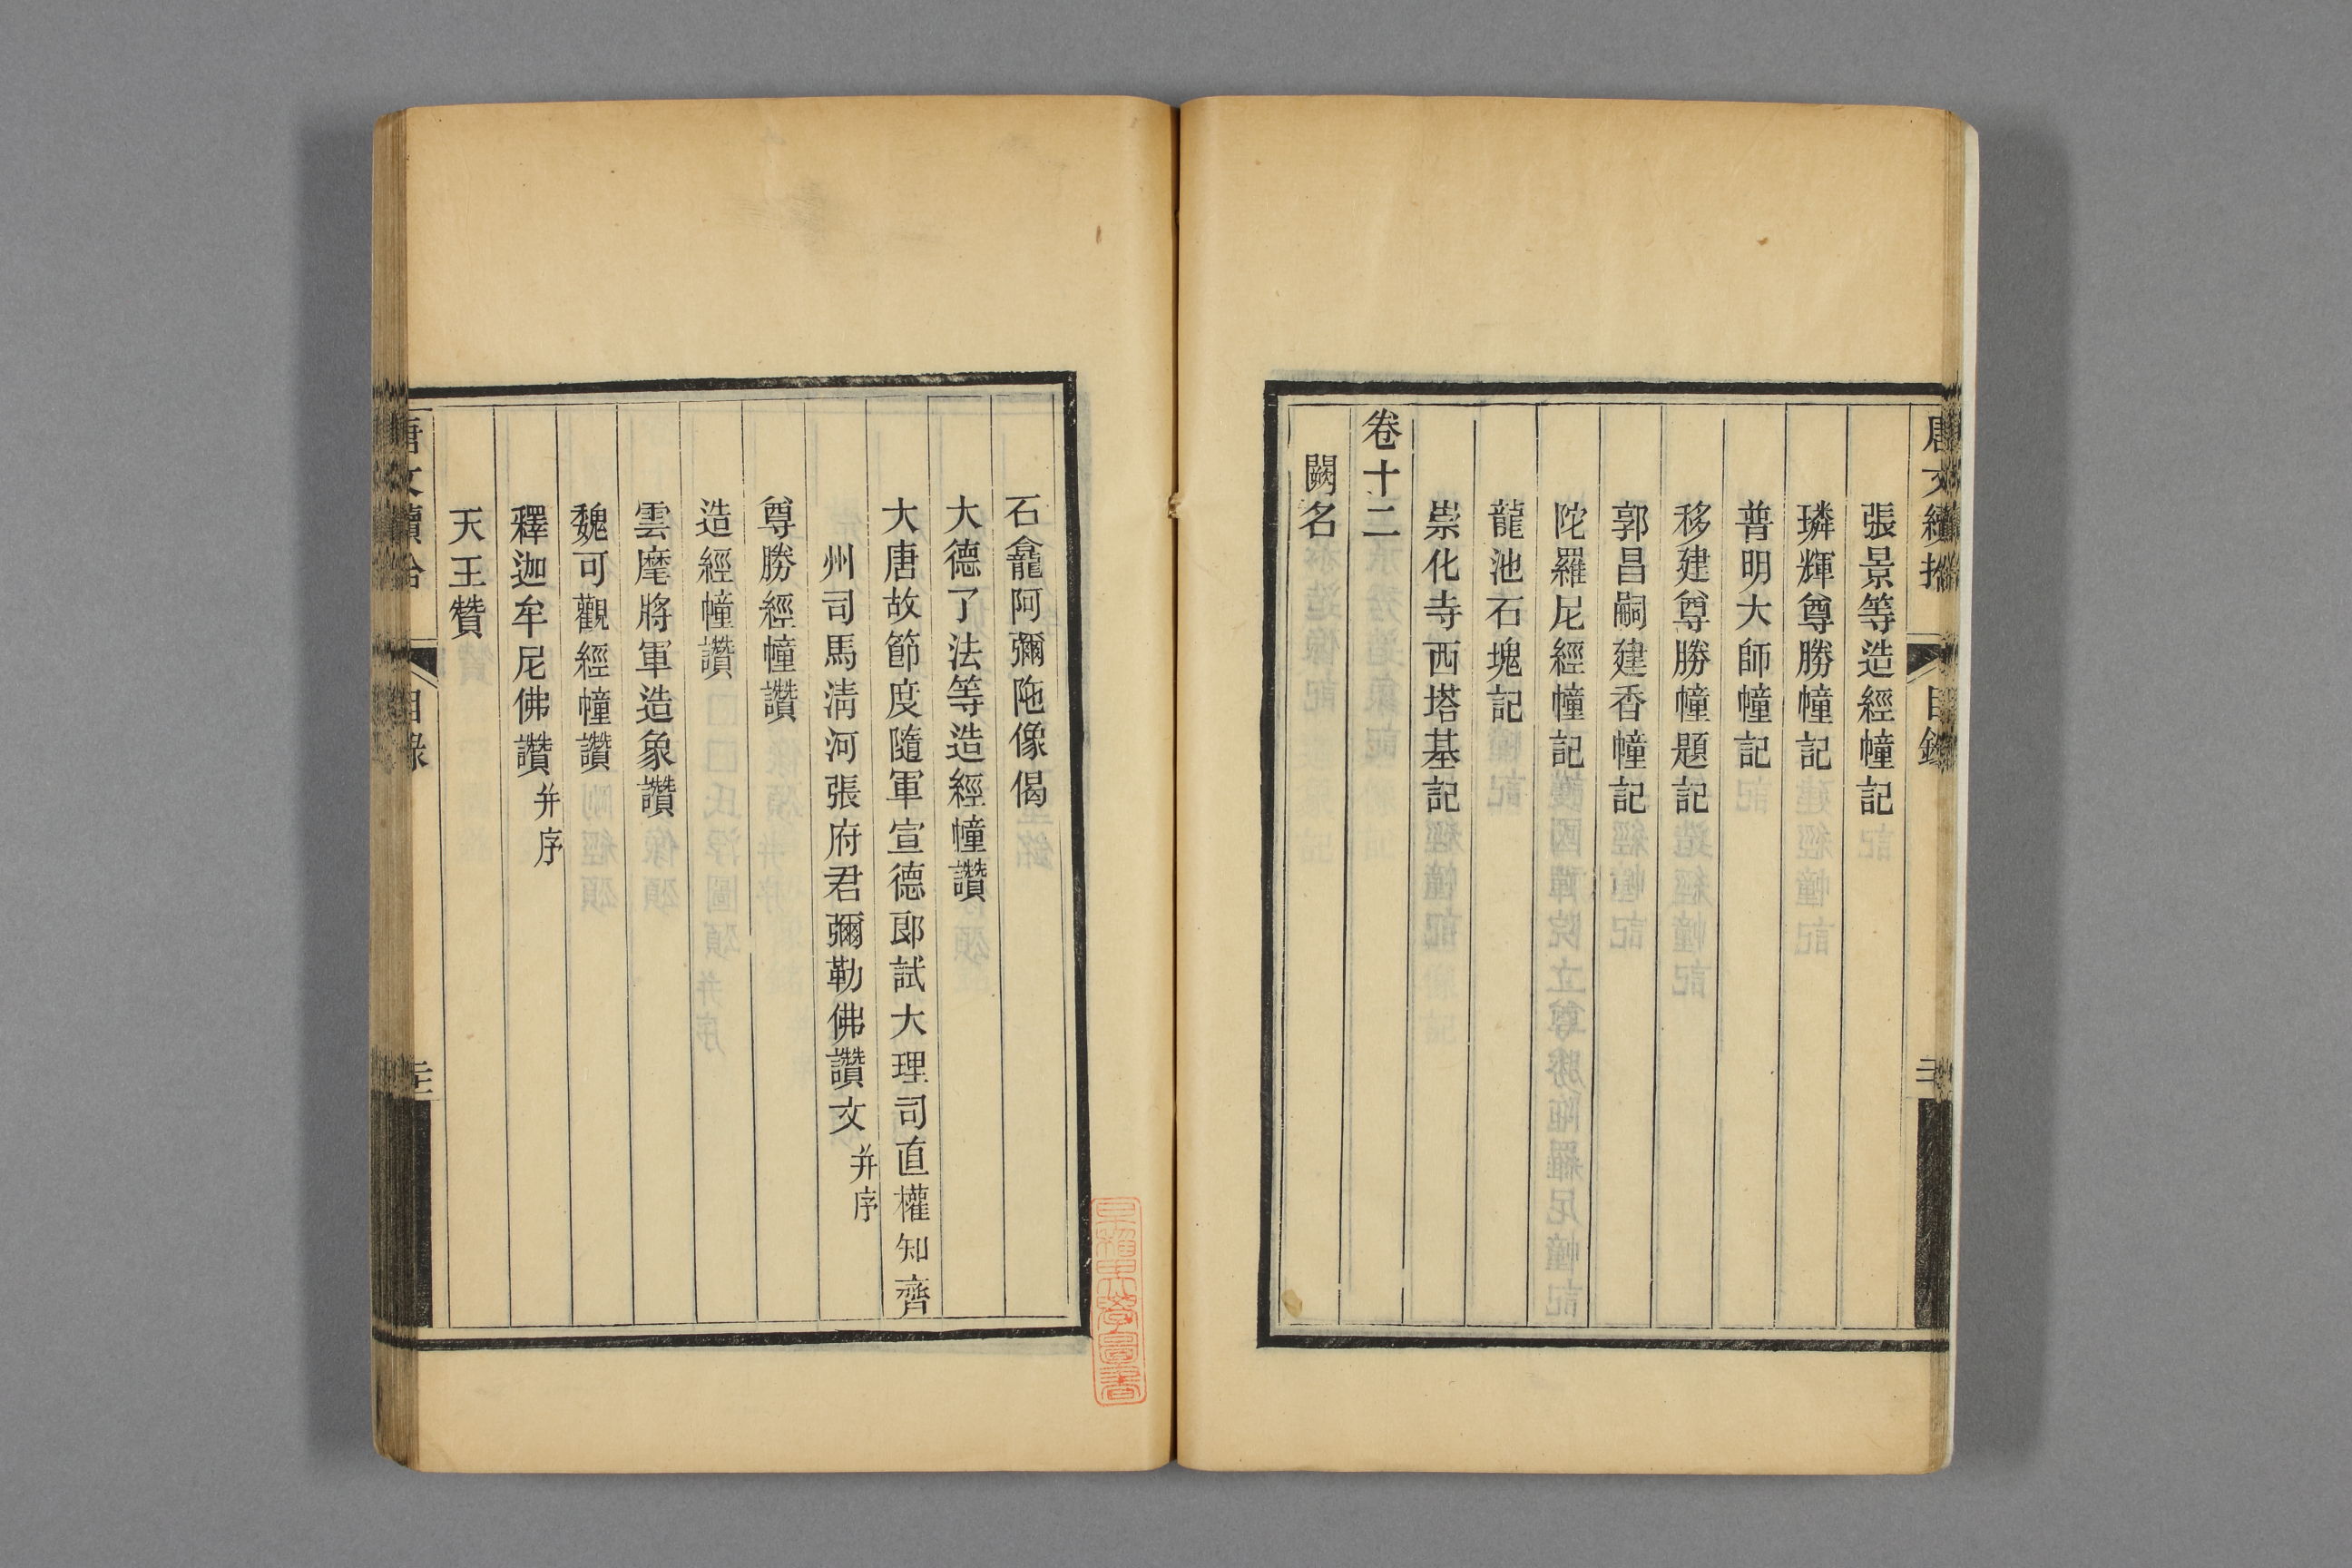 唐文續拾
目錄
張景等造經幢記
璘輝尊勝幢記
普明大師幢記
移建尊勝幢題記
郭昌嗣建香幢記
陀羅尼經幢記
龍池石塊記
崇化寺西塔基記
卷十二
闕名
石龕阿彌陁像偈
大德了法等造經幢讚
大唐故節度隨軍宣德郎試大理司直權知齊
州司馬淸河張府君彌勒佛讚文并序
尊勝經幢讚
造經幢讚
雲麾將軍造象讚
魏可觀經幢讚
釋迦牟尼佛讚并序
天王贊
唐文續拾
目錄